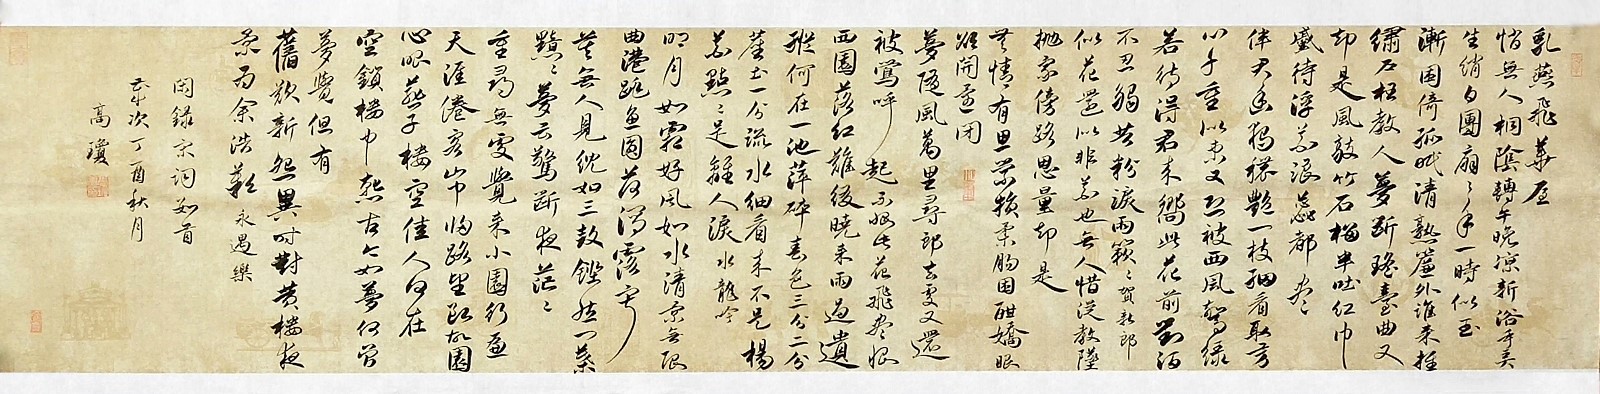 乳燕飛華屋
悄無人桐陰轉午晚涼新浴手弄
生綃白團扇扇手一時似玉
漸困倚孤眠清熟簾外誰來推
繡戶枉教人夢斷瑤臺曲又
却是風敲竹石榴半吐紅巾
蹙待浮花浪蕊都盡
伴君幽獨穠艷一枝細看取芳
心千重似束又恐被西風驚綠
若待得君來嚮此花前對酒
不忍觸共粉淚兩簌簌賀新郎
似花還似非花也無人惜從教墜
拋家傍路思量却是
無情有思縈損柔腸困酣嬌眼
欲開還閉
夢隨風萬里尋郎去處又還
被鶯呼起不恨此花飛盡恨
西園落紅難綴曉來雨過遺
蹤何在一池萍碎春色三分二分
塵土一分流水細看來不是楊
花點點是離人淚水龍吟
明月如霜好風如水清景無限
曲港跳魚圓荷瀉露寂
寞無人見紞如三鼓鏗然一葉
黯黯夢雲驚斷夜茫茫
重尋無處覺來小園行遍
天涯倦客山中歸路望斷故園
心眼燕子樓空佳人何在
空鎖樓中燕古今如夢何曾
夢覺但有
舊歡新怨異時對黃樓夜
景為余浩歎永遇樂
閑錄宋詞如首
歲次丁酉秋月
高瓊